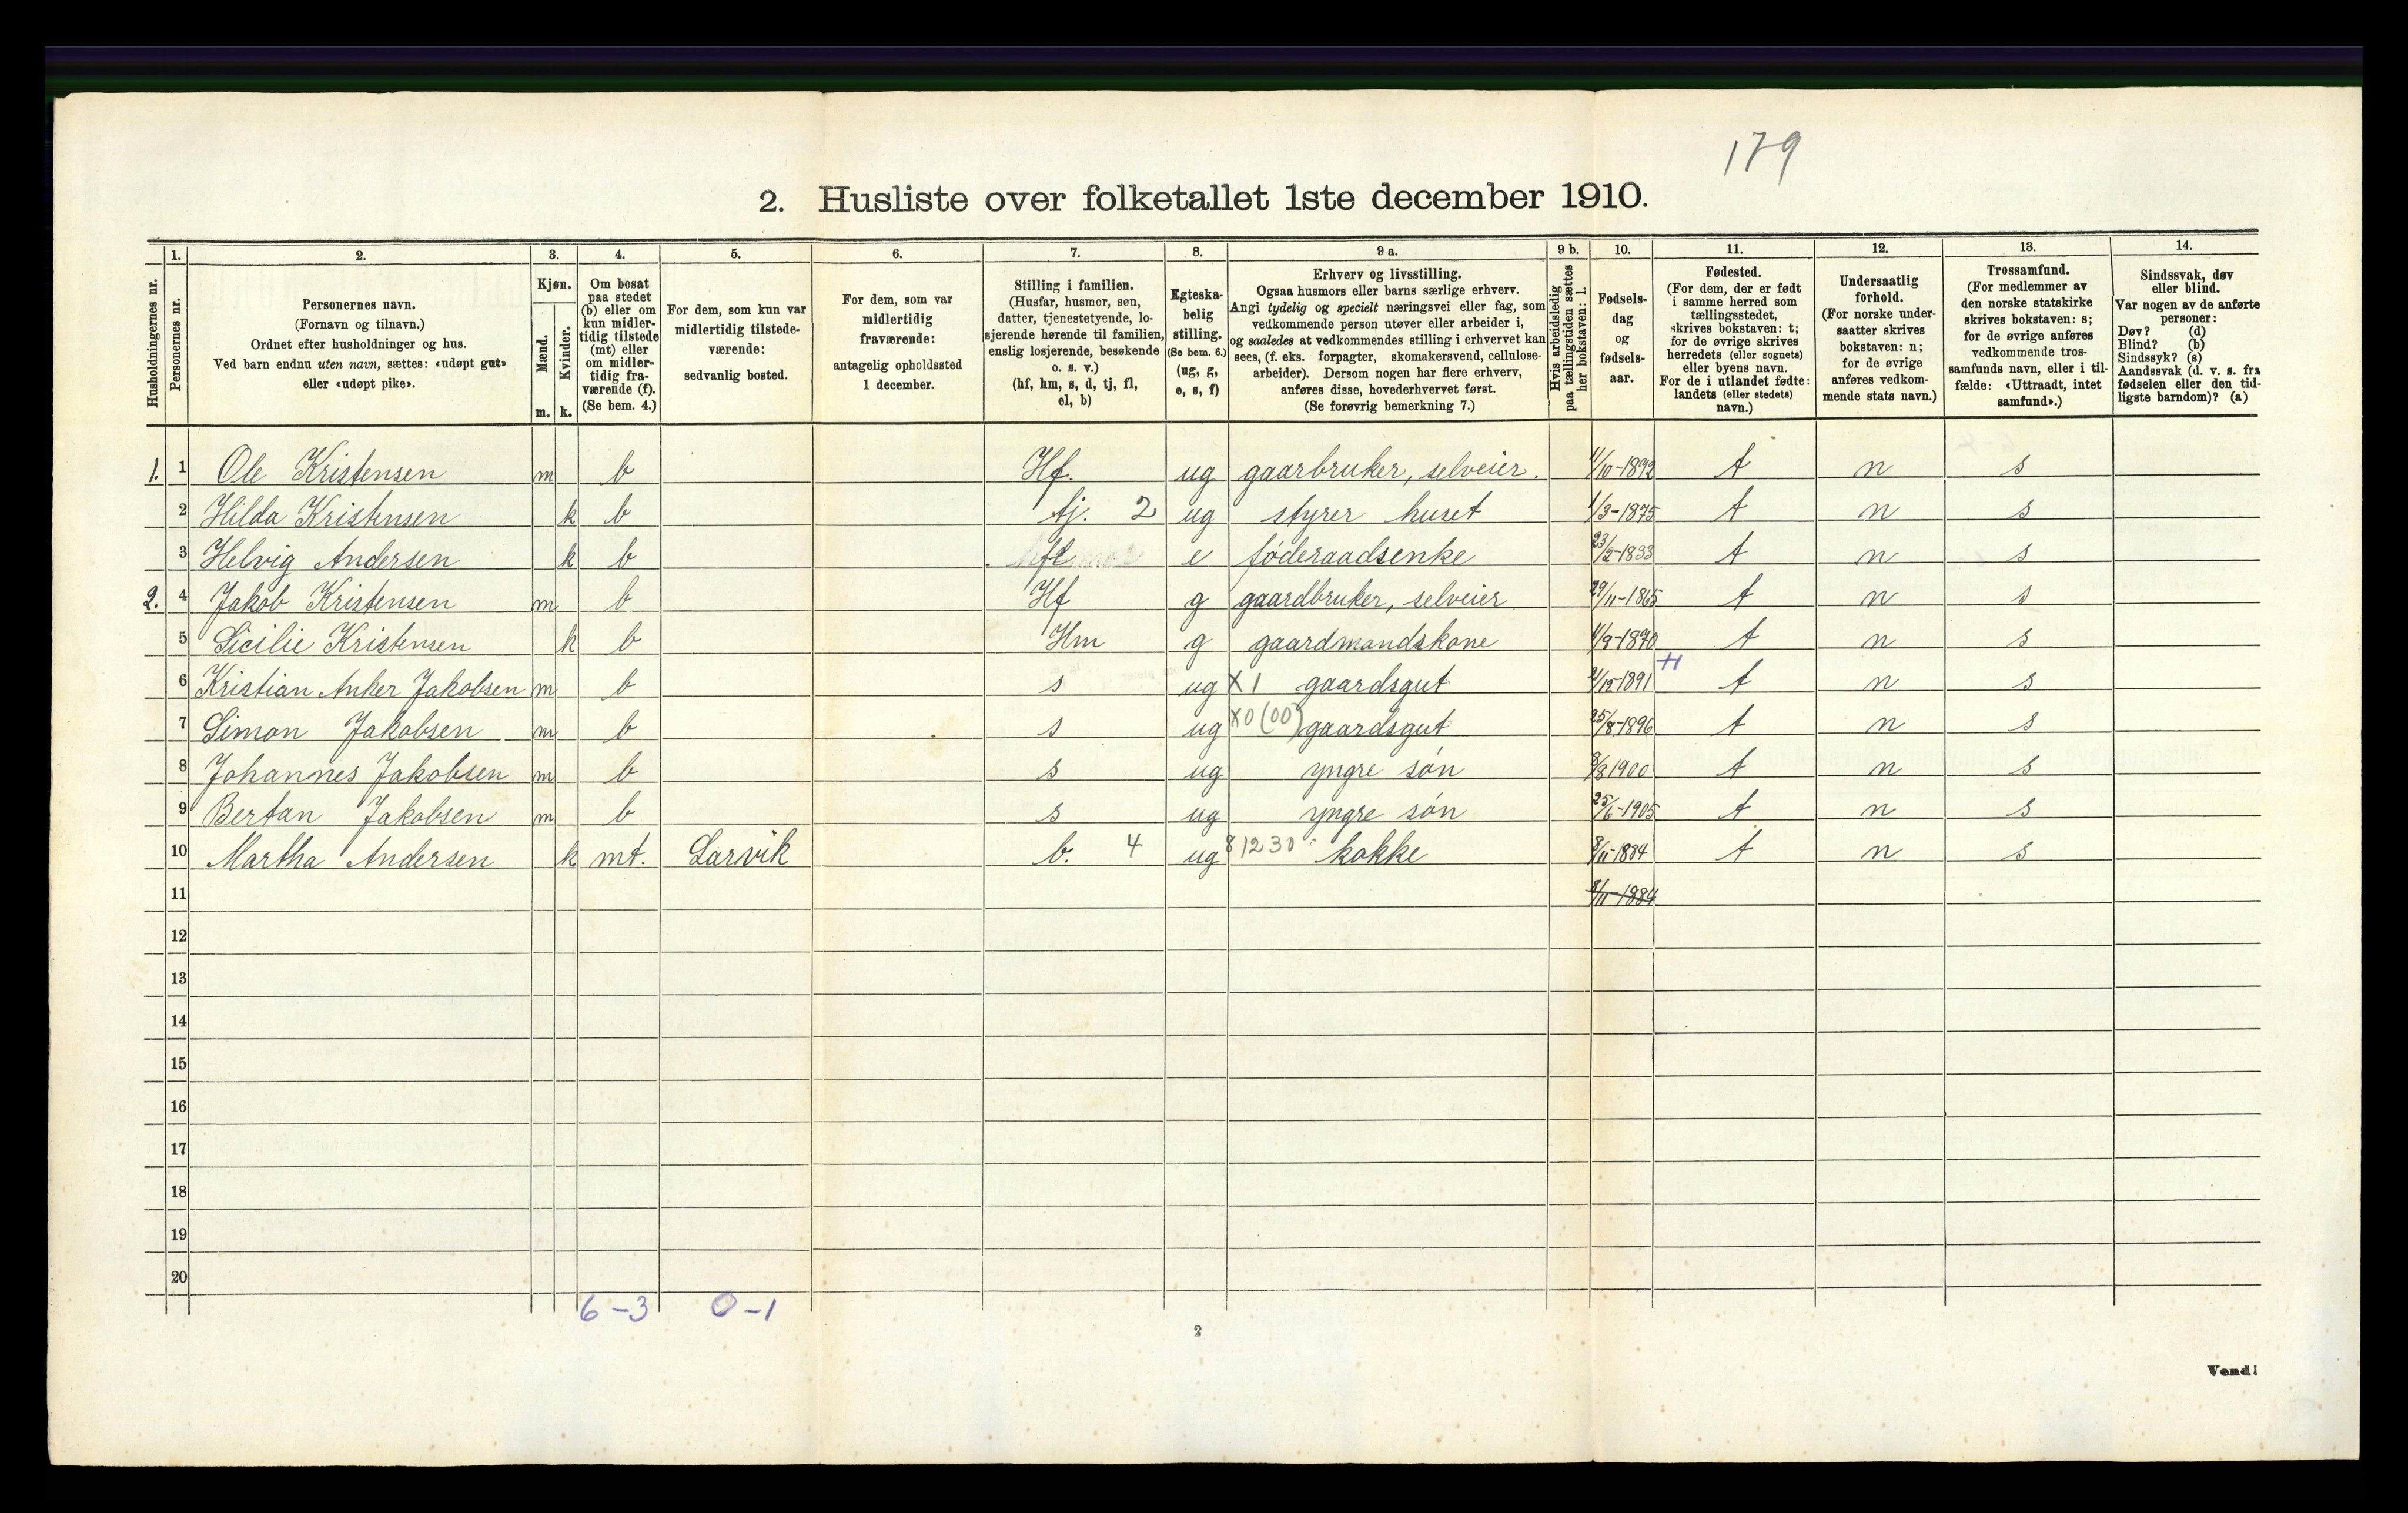 179
2. Husliste over folketallet 1ste december 1910.
Husholdningernes nr.
1.
Personernes nr.
2.
Personernes navn.
(Fornavn og tilnavn.)
Ordnet efter husholdninger og hus.
Ved barn endnu uten navn, sættes: «udøpt gut»
eller «udøpt pike».
3.
Kjøn.
Mænd.
Kvinder.
m. k.
4.
Om bosat
paa stedet
(b) eller om
kun midler-
tidig tilstede
(mt) eller
om midler-
tidig fra-
værende (f).
(Se bem. 4.)
5.
For dem, som kun var
midlertidig tilstede-
værende:
sedvanlig bosted.
6.
For dem, som var
midlertidig
fraværende:
antagelig opholdssted
1 december.
7.
Stilling i familien.
(Husfar, husmor, søn,
datter, tjenestetyende, lo-
sjerende hørende til familien,
enslig losjerende, besøkende
o. s. v.)
(hf, hm, s, d, tj, fl,
el, b)
8.
Egteska-
belig
stilling.
(Se bem. 6.)
(ug, g,
e, s, f)
9 a.
Erhverv og livsstilling.
Ogsaa husmors eller barns særlige erhverv.
Angi tydelig og specielt næringsvei eller fag, som
vedkommende person utøver eller arbeider i,
og saaledes at vedkommendes stilling i erhvervet kan
sees, (f. eks. forpagter, skomakersvend, cellulose-
arbeider). Dersom nogen har flere erhverv,
anføres disse, hovederhvervet først.
(Se forøvrig bemerkning 7.)
9 b.
Hvis arbeidsledig
paa tællingstiden sættes
her bokstaven: l.
10.
Fødsels-
dag
og
fødsels-
aar.
11.
Fødested.
(For dem, der er født
i samme herred som
tællingsstedet,
skrives bokstaven: t;
for de øvrige skrives
herredets (eller sognets)
eller byens navn.
For de i utlandet fødte:
landets (eller stedets)
navn.)
12.
Undersaatlig
forhold.
(For norske under-
saatter skrives
bokstaven: n;
for de øvrige
anføres vedkom-
mende stats navn.)
13.
Trossamfund.
(For medlemmer av
den norske statskirke
skrives bokstaven: s;
for de øvrige anføres
vedkommende tros-
samfunds navn, eller i til-
fælde: «Uttraadt, intet
samfund».)
14.
Sindssvak, døv
eller blind.
Var nogen av de anførte
personer:
Døv? (d)
Blind? (b)
Sindssyk? (s)
Aandssvak (d. v. s. fra
fødselen eller den tid-
ligste barndom)? (a)
1. 1 Ole Kristensen m b Hf. ug gaarbruker, selveier. 11/10-1872 t n s
2 Hilda Kristensen k b tj. 2 ug styrer huset 1/3-1875 t n s
3 Helvig Andersen k b fl e føderaadsenke 23/2-1833 t n s
2. 4 Jakob Kristensen m b Hf g gaardbruker, selveier 29/11-1865 t n s
5 Sicilie Kristensen k b Hm g gaardmandskone 4/9-1870 t n s
6 Kristian Anker Jakobsen m b s ug X 1 gaardsgut 2/12-1891 t n s
7 Simon Jakobsen m b s ug X0(00) gaardsgut 25/8-1896 t n s
8 Johannes Jakobsen m b s ug yngre søn 8/8 1900 t n s
9 Bertan Jakobsen m b s ug yngre søn 25/6-1905 t n s
10 Martha Andersen k mt. Larvik b. 4 ug 81230 kokke 8/11-1884 t n s
11 8/11-1884
12
13
14
15
16
17
18
19
20
6-3 0-1
2
Vend!